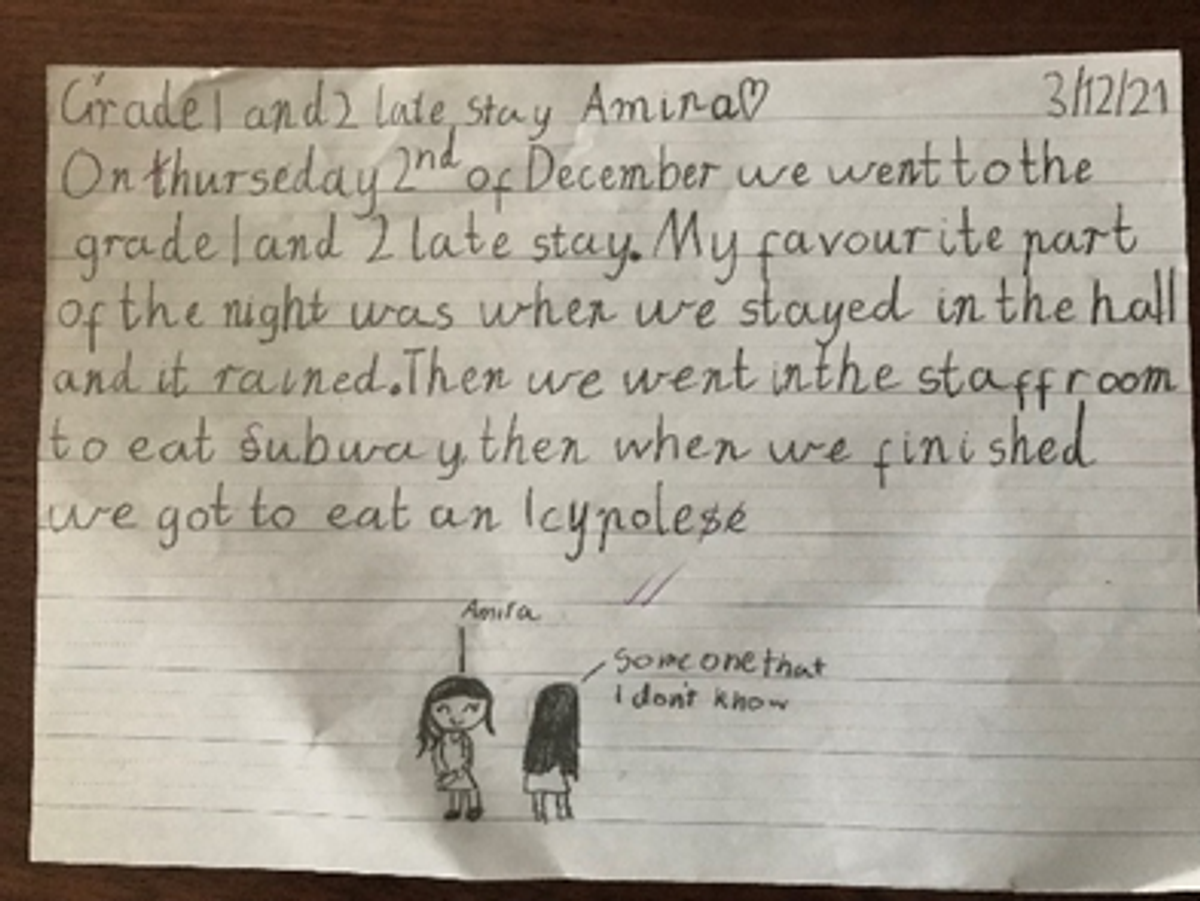 Grade 1 and 2 late stay Amira♡ 3/12/21
On thurseday 2nd of December we went to the
grade 1 and 2 late stay. My favourite part
of the night was when we stayed in the hall
and it rained. Then we went in the staffroom
to eat Subway, then when we finished
we got to eat an Icypolese
Amira
Some one that
I don't know